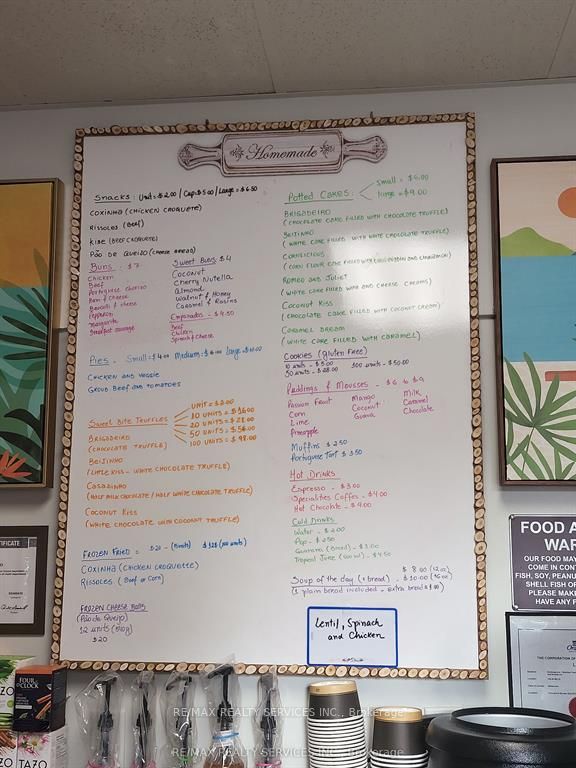 Homemade
Snacks: Unit = $2.00 / Cup = $5.00 / Large = $6.50
COXINHA (CHICKEN CROQUETE)
RISSOLES (Beef)
KIBE (BEEF CROQUETE)
PÃO DE QUEIJO (CHEESE BREAD)
Buns - $7
Chicken
Beef
Portuguese chorizo
Ham & Cheese
Brocolli & cheese
Pepperoni
Margarita
Breakfast sausage
Sweet Buns $4
Coconut
Cherry Nutella
Almond
Walnut & Honey
Caramel & Raisins
Empanadas - $4.50
Beef
Chicken
Spinach & Cheese
Pies - Small = $4.00 Medium = $6.00 large = $10.00
CHICKEN AND VEGGIE
GROUD BEEF AND TOMATOES
Sweet Bite Truffles
UNIT = $2.00
10 UNITS = $16.00
20 UNITS = $28.00
50 UNITS = $56.00
100 UNITS = $98.00
BRIGADEIRO
(CHOCOLATE TRUFFLE)
BEIJINHO
(LITTLE KISS - WHITE CHOCOLATE TRUFFLE)
CASADINHO
(HALF MILK CHOCOLATE / HALF WHITE CHOCOLATE TRUFFLE)
COCONUT KISS
(WHITE CHOCOLATE WITH COCONUT TRUFFLE)
FROZEN FRIED =
COXINHA (CHICKEN CROQUETTE)
RISSOLES (Beef or Corn)
FROZEN CHEESE BALLS
(Pão de Queijo)
12 units
$20
Potted Cakes:
small = $6.00
large = $9.00
BRIGADEIRO
(CHOCOLATE CAKE FILLED WITH CHOCOLATE TRUFFLE)
BEIJINHO
(WHITE CAKE FILLED WITH WHITE CHOCOLATE TRUFFLE)
CORNLICIOUS
(CORN FLOUR CAKE FILLED WITH CORN PUDDIN AND CINNAMON)
ROMEO AND JULIET
(WHITE CAKE FILLED WITH AND CHEESE CREAMS)
COCONUT KISS
(CHOCOLATE CAKE FILLED WITH COCONUT CREAM)
CARAMEL DREAM
(WHITE CAKE FILLED WITH CARAMEL)
COOKIES (Gluten Free)
10 units - $5.00 100 units - $50.00
50 units - $28.00
Puddings & Mousses - $6 & $9
Passion Fruit
Corn
Lime
Pineapple
Mango
Coconut
Guava
Milk
Caramel
Chocolate
Muffins $2.50
Portuguese Tart $3.50
Hot Drinks
Espresso - $3.00
Specialities Coffes - $4.00
Hot Chocolate - $4.00
Cold Drinks
Water - $2.00
Pop - $2.50
Guarana (Brazil) - $3.00
Tropical Juice - $4.50
Soup of the day (+ bread) -
$8.00 (12oz)
$10.00 (16oz)
(1 plain bread included - extra bread $1.00)
Lentil, Spinach
and Chicken
FOOD A
WAR
OUR FOOD MAY
COME IN CONT
FISH, SOY, PEANU
SHELL FISH OF
PLEASE MAKE
HAVE ANY F
THE CORPORATION OF
TIFICATE
FOUR
O'CLOCK
ZO
ZO
TAZO
RE/MAX REALTY SERVICES INC., Brokerage
RE/MAX REALTY SERVICES INC., Brokerage